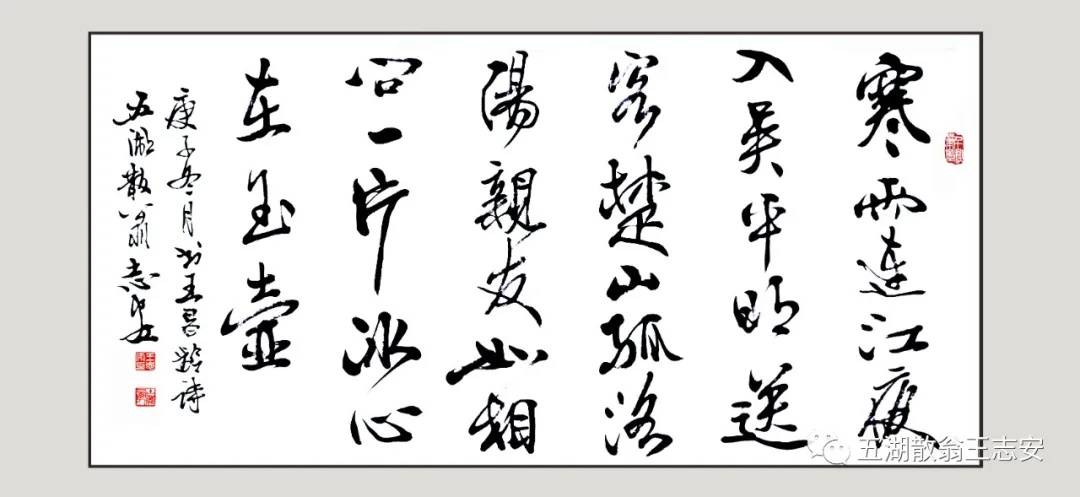 寒雨連江夜
入吴平明送
客楚山孤洛
陽親友如相
问一片冰心
在玉壺
庚子冬月书王昌龄诗
五湖散翁志安
五湖散翁王志安